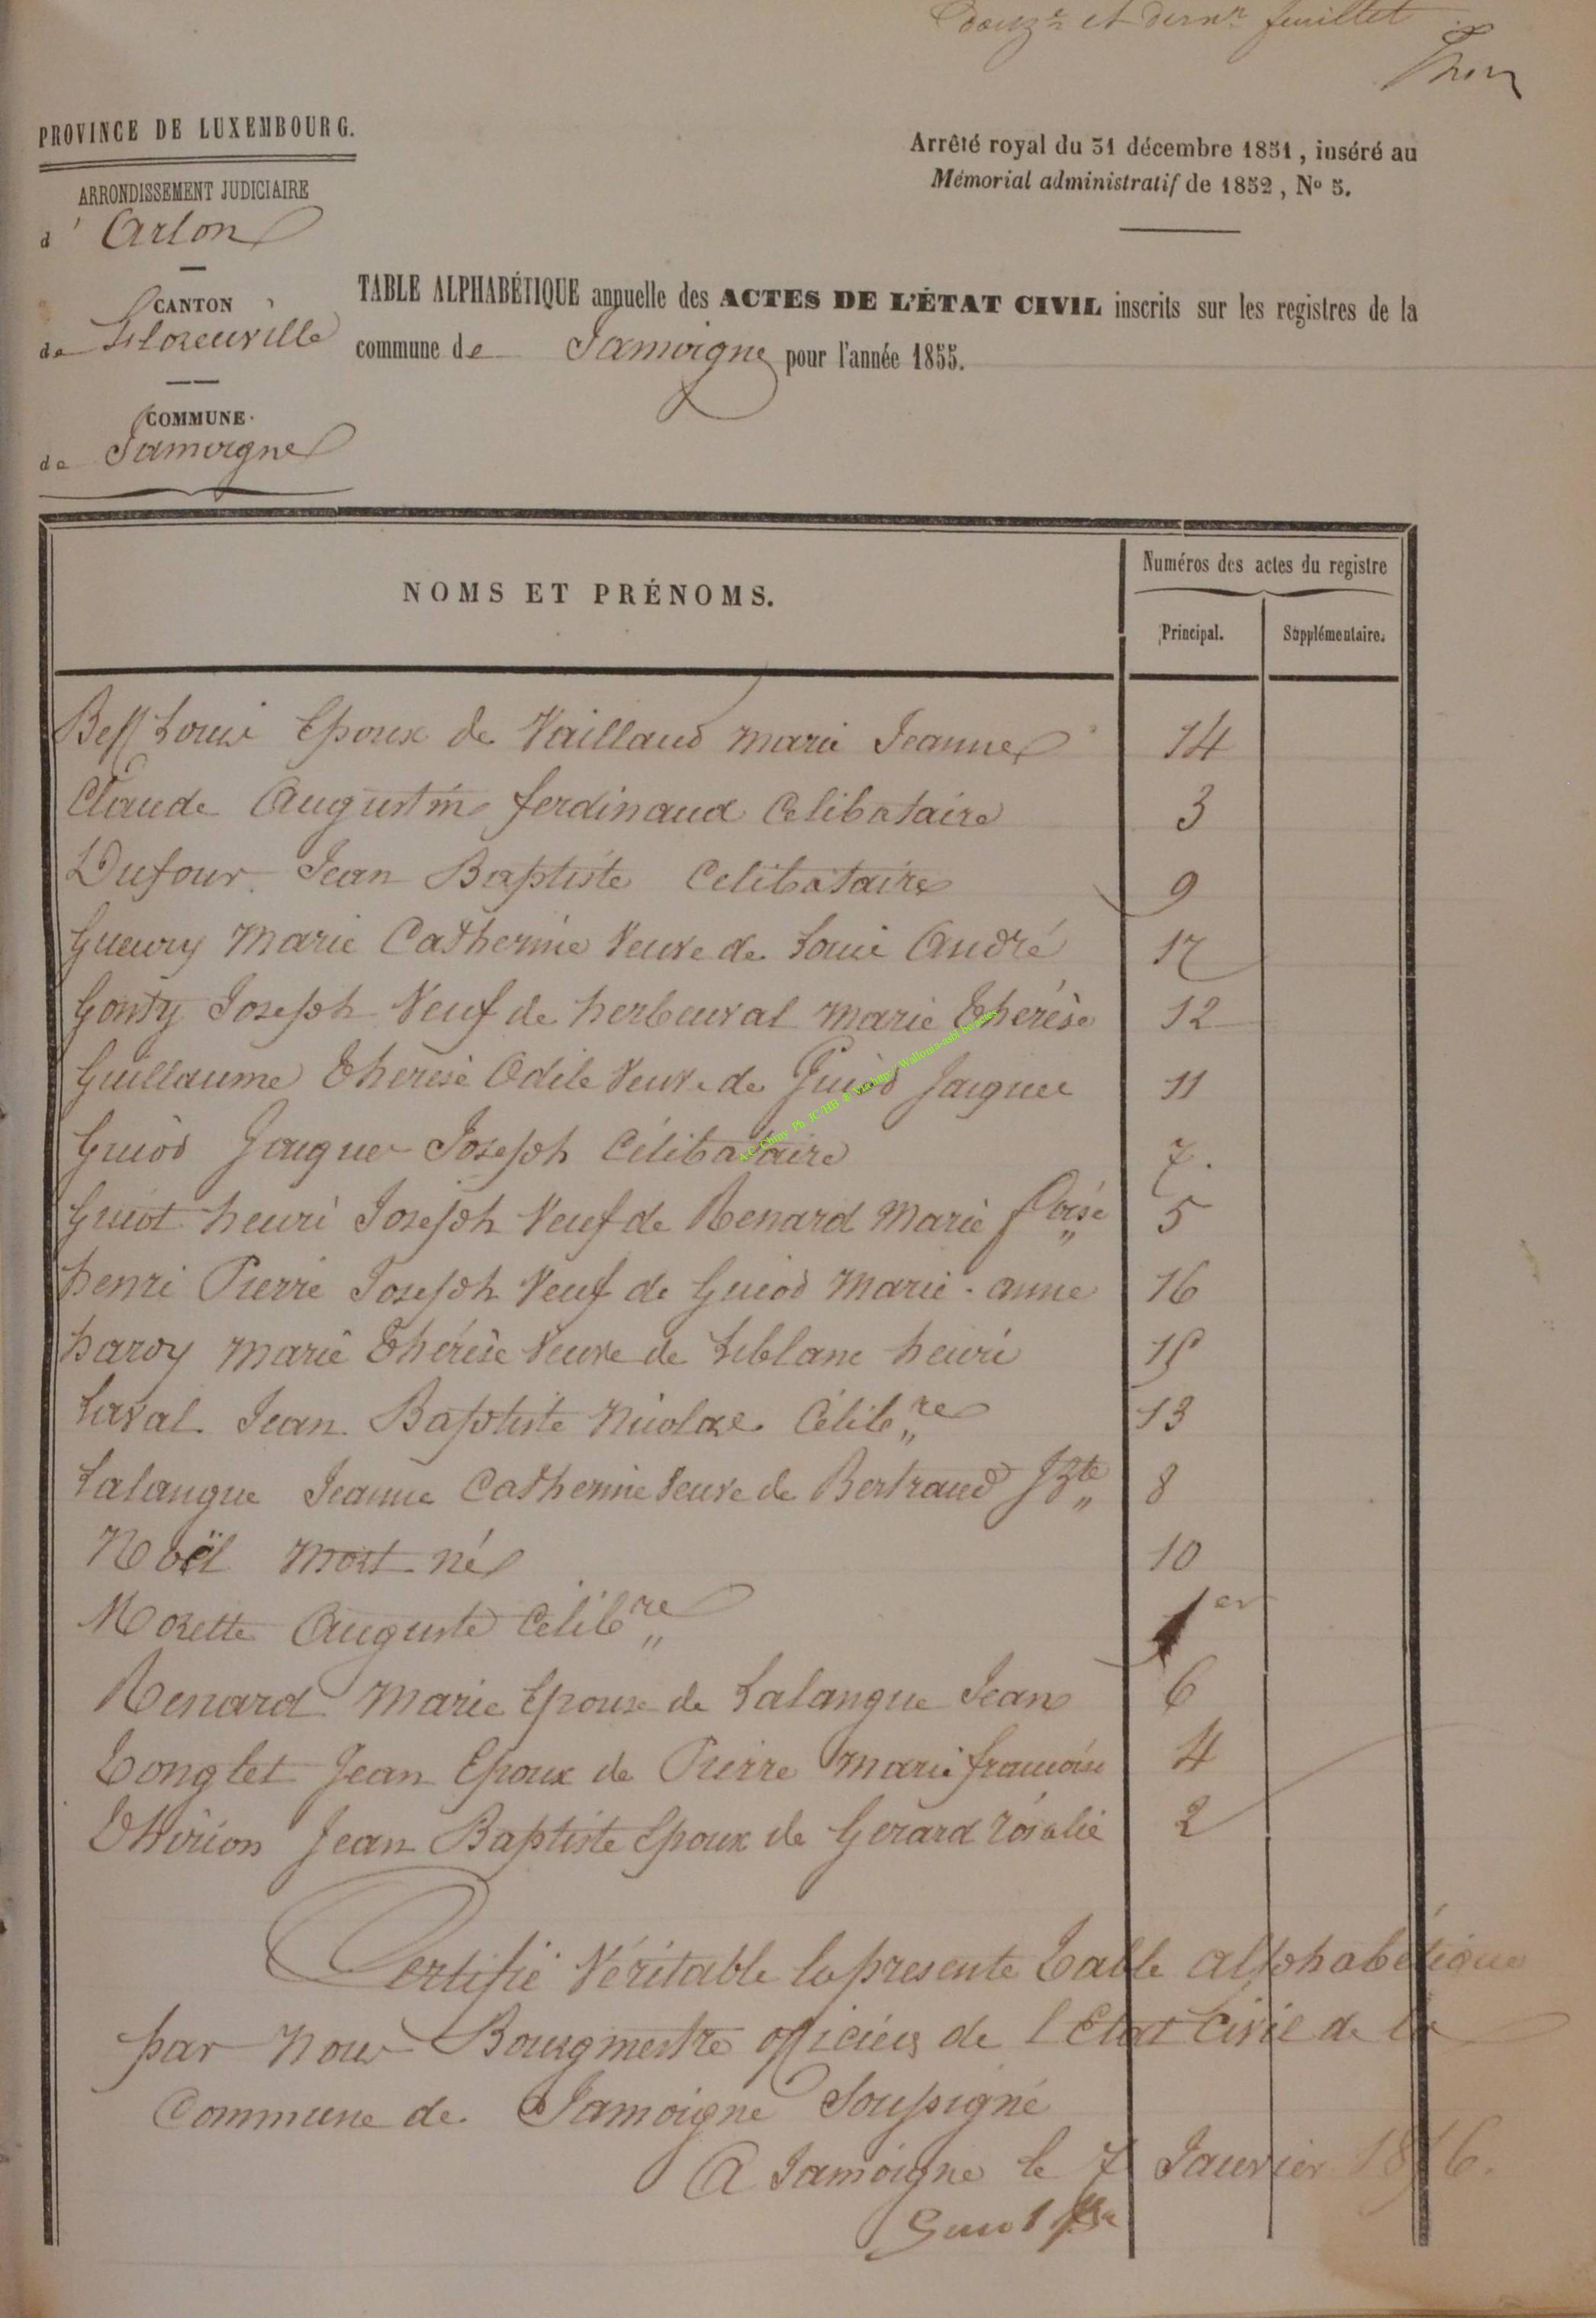 Douz.e et dern.r feuillet
PROVINCE DE LUXEMBOURG.
Arrêté royal du 31 décembre 1851, inséré au
Mémorial administratif de 1852, No 5.
ARRONDISSEMENT JUDICIAIRE
d' Arlon
CANTON
de Florenville
TABLE ALPHABÉTIQUE annuelle des ACTES DE L'ÉTAT CIVIL inscrits sur les registres de la
commune de Jamoigne pour l'année 1855.
COMMUNE.
de Jamoigne
NOMS ET PRÉNOMS.
Numéros des actes du registre
Principal.
Supplémentaire.
Louis Epoux de Vaillaud marie Jeanne 14
Claude Augustin ferdinand Celibataire 3
Dufour Jean Baptiste Celibataire 9
Gueury Marie Catherine Veuve de Louis André 17
Gonty Joseph Veuf de herbeuval marie Therèse 12
Guillaume Therese Odile Veuve de Guiod Jacques 11
Guiod Jacques Joseph Célibataire 7.
Guiot henri Joseph Veuf de Renard Marie foise 5
henri Pierre Joseph Veuf de Guiod Marie-anne 16
hardy marie Thérèse Veuve de Leblanc henri 15
Laval Jean Baptiste Nicolas Célibre 13
Lalangue Jeanne Catherine Veuve de Bertrand JBte 8
Noël mort né 10
Nosette Auguste Celibre 1er
Renard Marie Epouse de Lalangue Jean 6
Tonglet Jean Epoux de Pierre Marie francoise 4
Thirion Jean Baptiste Epoux de Gerard rosalie 2
Certifié Véritable la presente Table alphabétique
par Nous Bourgmestre officier de l'Etat Civil de la
Commune de Jamoigne Soussigné
A Jamoigne le 7 Janvier 1856.